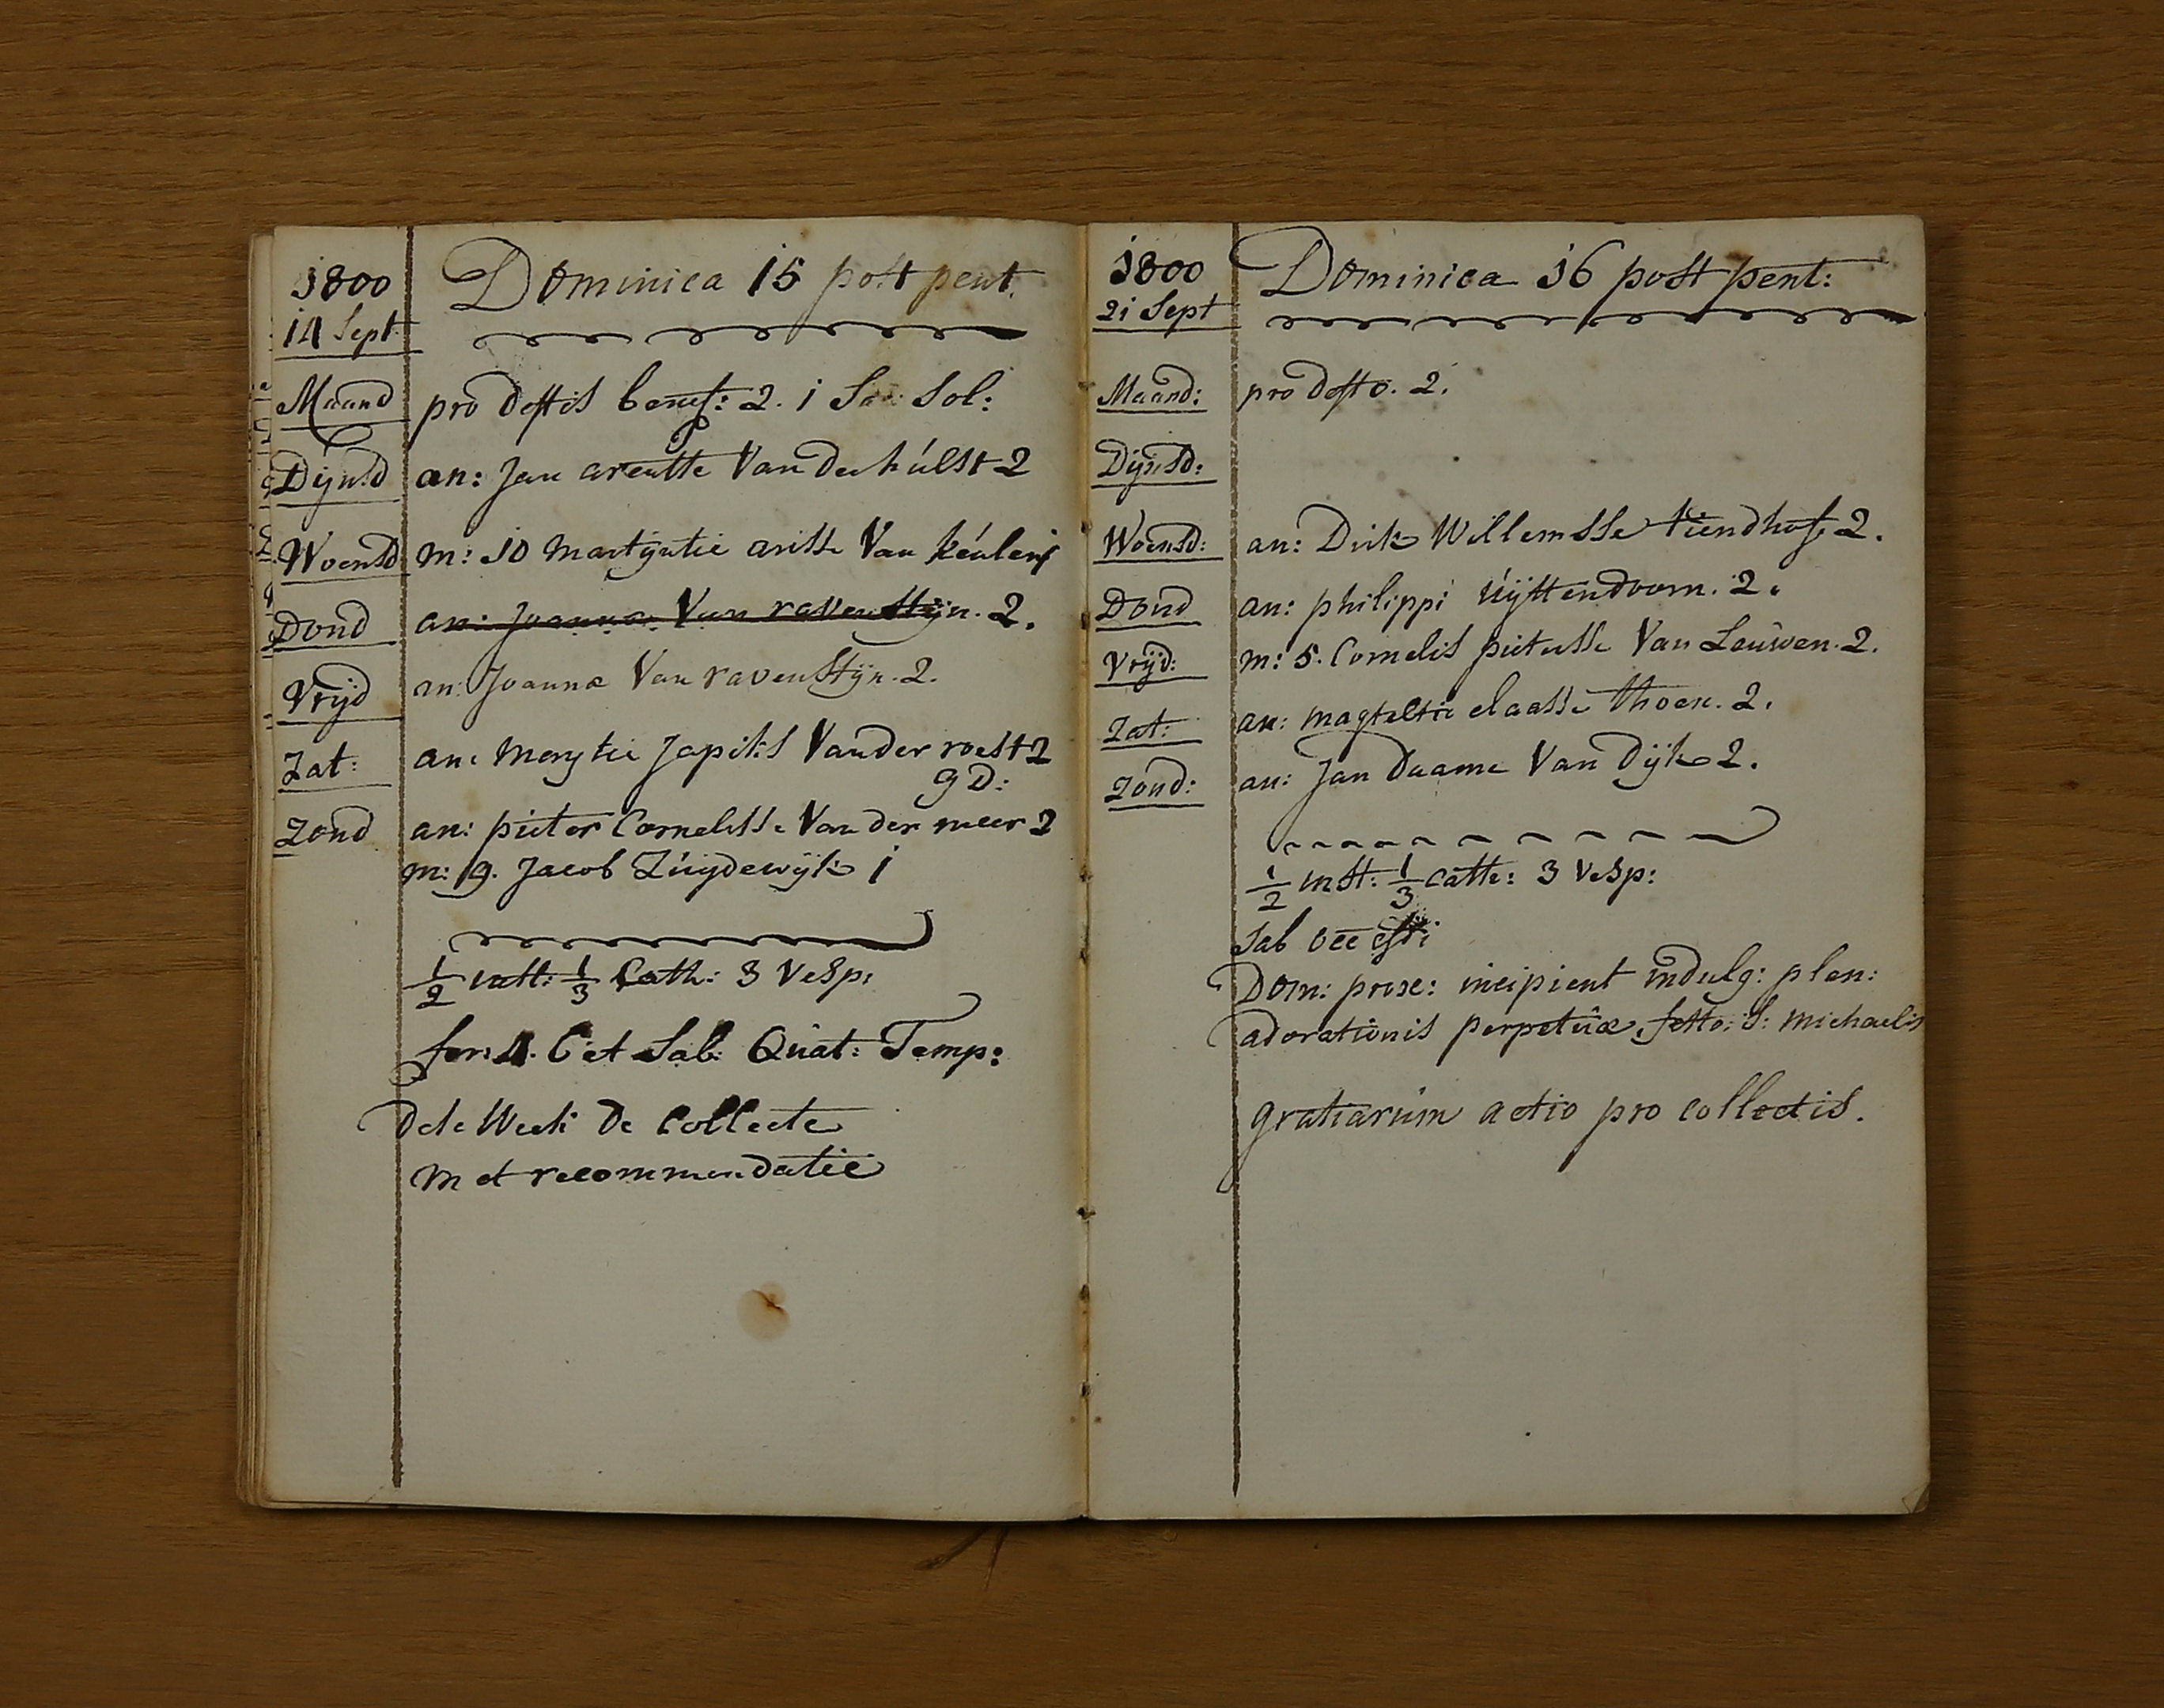 1800
14 Sept
Dominica 15 post pent.
Maand pro deftis benef: 2. 1 Sol:
Dijnsd an: Jan arentse Van der hulst 2
Woensd m: 10 martijntie arisse Van keulen
Dond an: Joanna Van ravenstijn. 2.
Vrijd an: Joanna Van ravenstijn. 2.
Zat: an: marytie Japiks Van der voest 2
9 D:
Zond an: pieter Cornelisse Van der meer 2
m: 9. Jacob Zuijdewijk 1
1/2 inst: 1/3 Cath: 3 Vesp:
fer: 4. 6 et Sab: Quat: Temp:
dese Week de Collecte
met recommendatie
1800
21 Sept
Dominica 16 post pent:
Maand: pro defto. 2.
Dijnsd:
Woensd: an: Dirk Willemsse tiendhof. 2.
Dond an: philippi Uijttendoorn. 2.
Vrijd: m: 5. Cornelis pietersse Van Leuwen. 2.
Zat: an: magteltie claasse thoen. 2.
Zond: an: Jan Daame Van Dijk 2.
1/2 inst: 1/3 cath: 3 Vesp:
Sab
Dom: prox: incipient indulg: plen:
adorationis perpetuæ, festo: S: michaelis
gratiarum actio pro collectis.